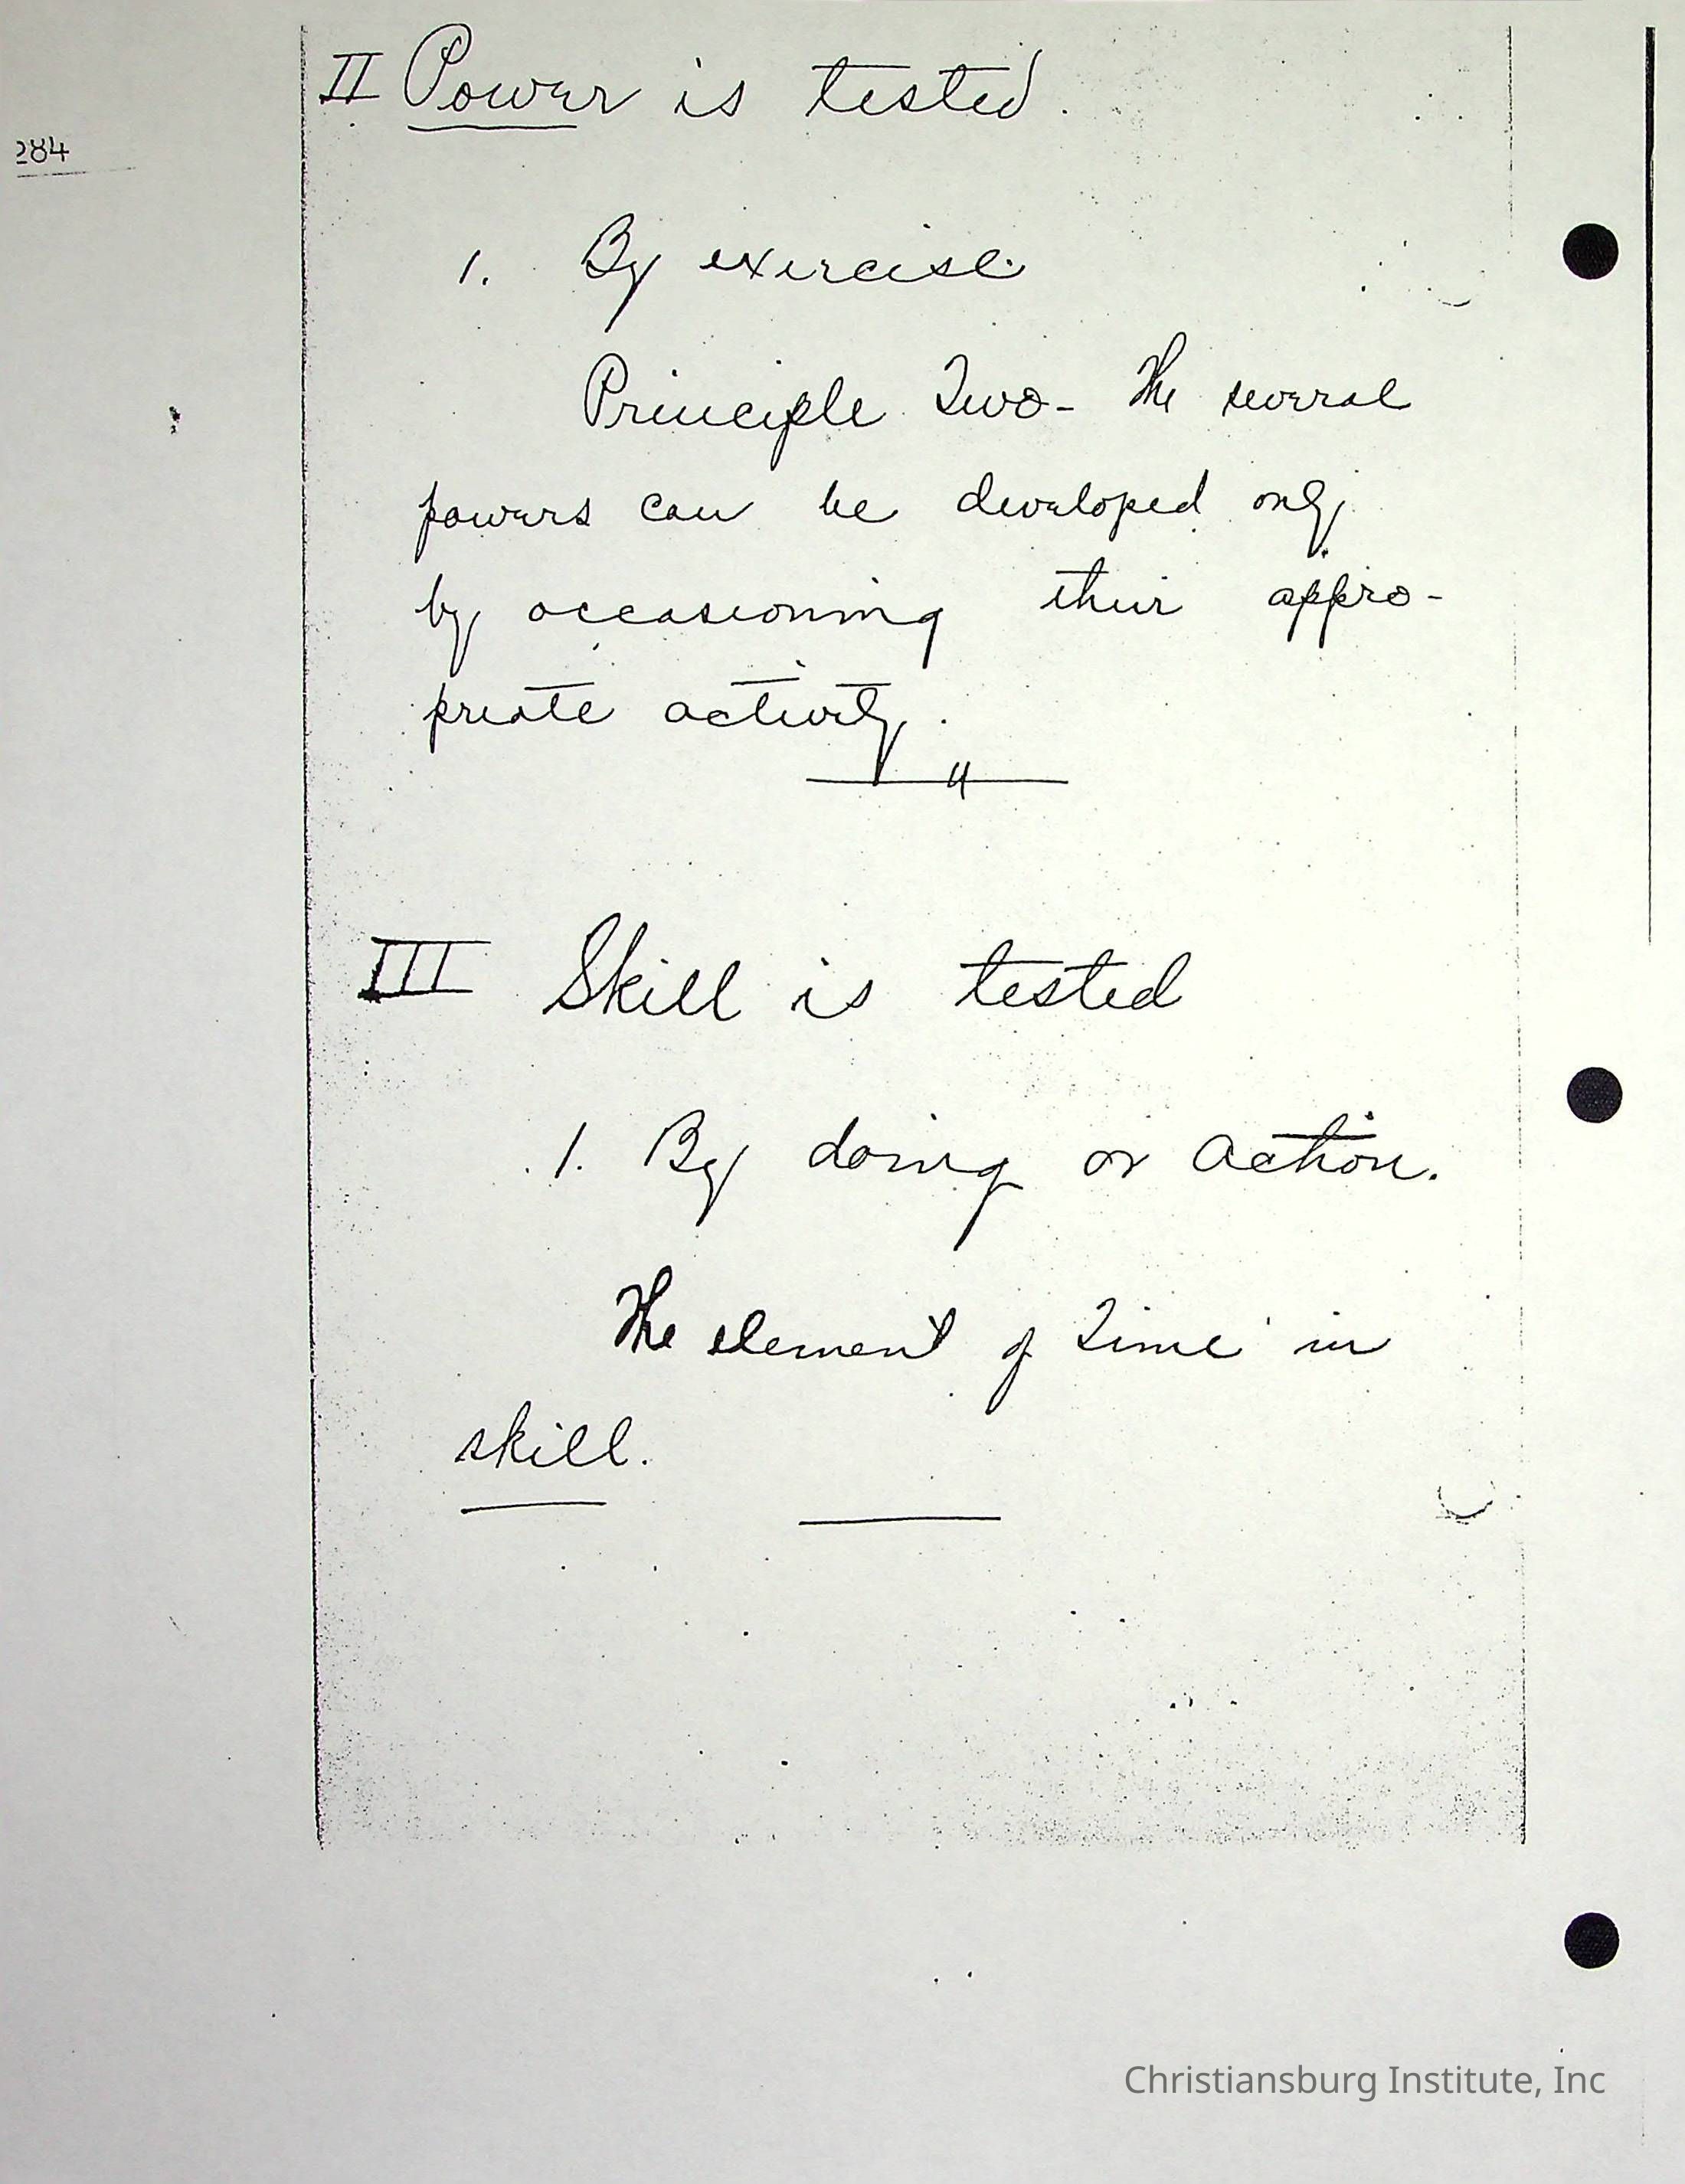 II Power is tested.
284
1. By exercise.
Principle Two- The several
powers can be developed only
by occasioning their appro-
priate activity.
III Skill is tested
1. By doing or action.
The element of Time in
skill.
Christiansburg Institute, Inc